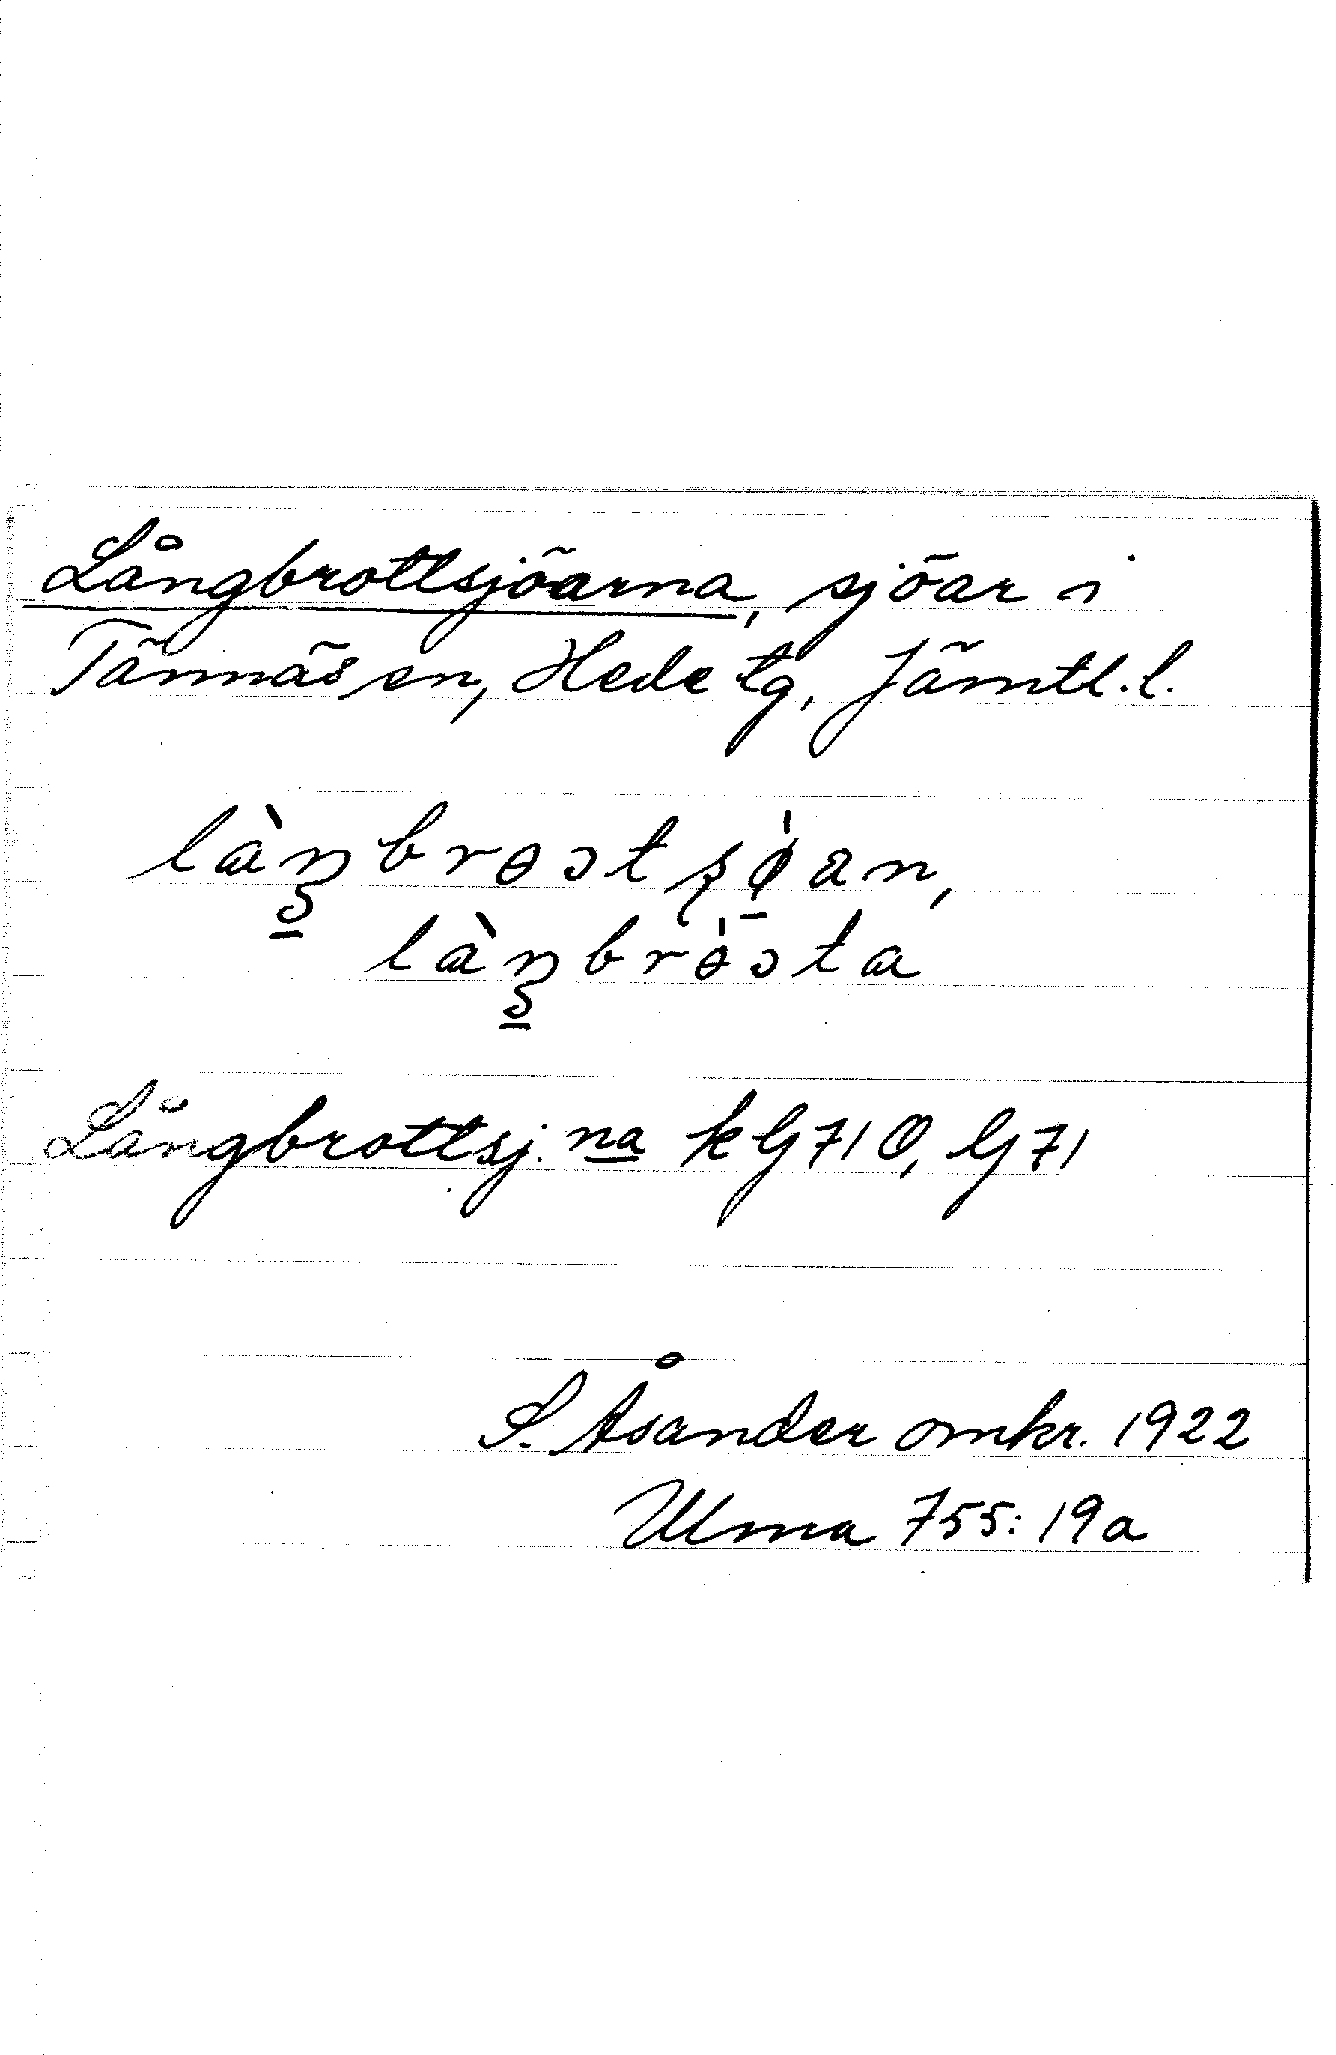 Långbrottsjöarna, sjöar i
Tännäs sn, Hede tg, Jämtl. l.
làŋbrɵɔtʂø̀an,
làŋbrɵ̀ɔta
Långbrottsj. na kG71O, G71
S. Åsander omkr. 1922
Ulma 755:19a